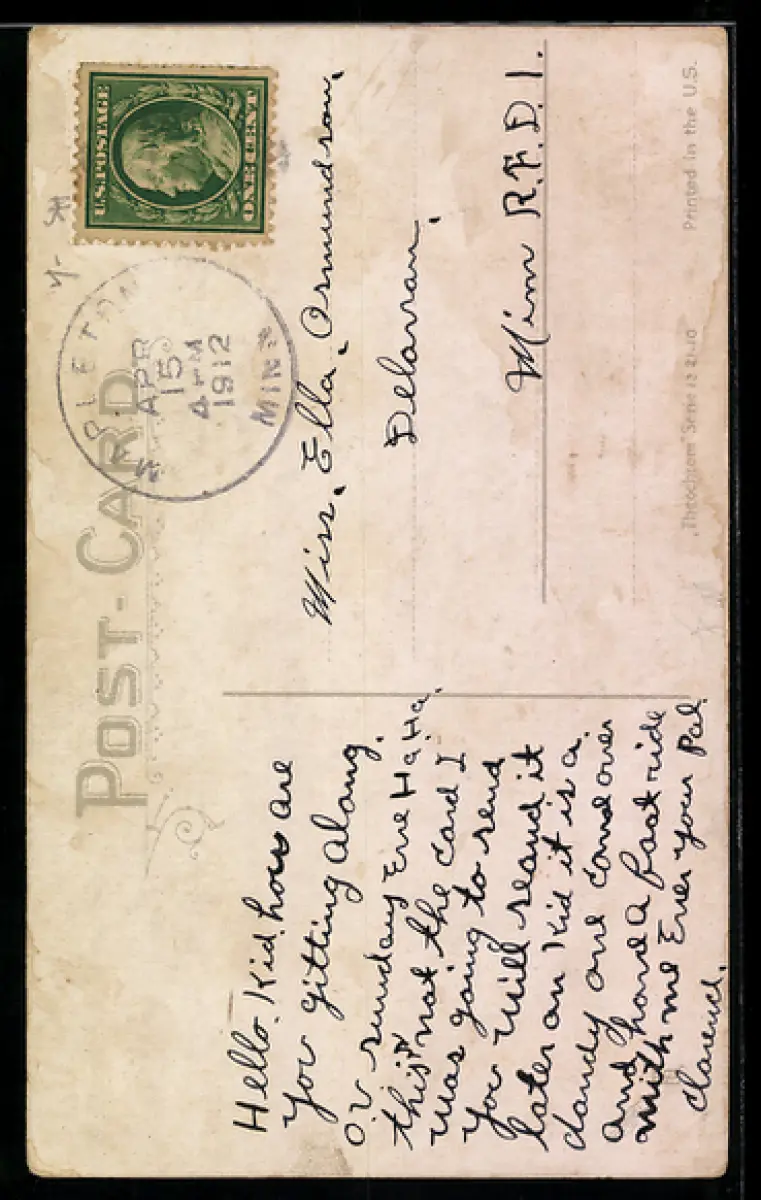 POST-CARD
U.S. POSTAGE
ONE CENT
MAPLETON
APR
15
4 PM
1912
MINN
Hello. Kid. how are
you gitting along.
ov sunday Eve Ha Ha.
this not the card I
was going to send
you will seand it
later on Kid it is a
dandy and come over
and have a boat ride
with me Ever your Pal
Clarence.
Miss. Ella. Osmundson.
Delavan.
Minn R.F.D. 1.
"Theochrom" Serie
Printed in the U.S.